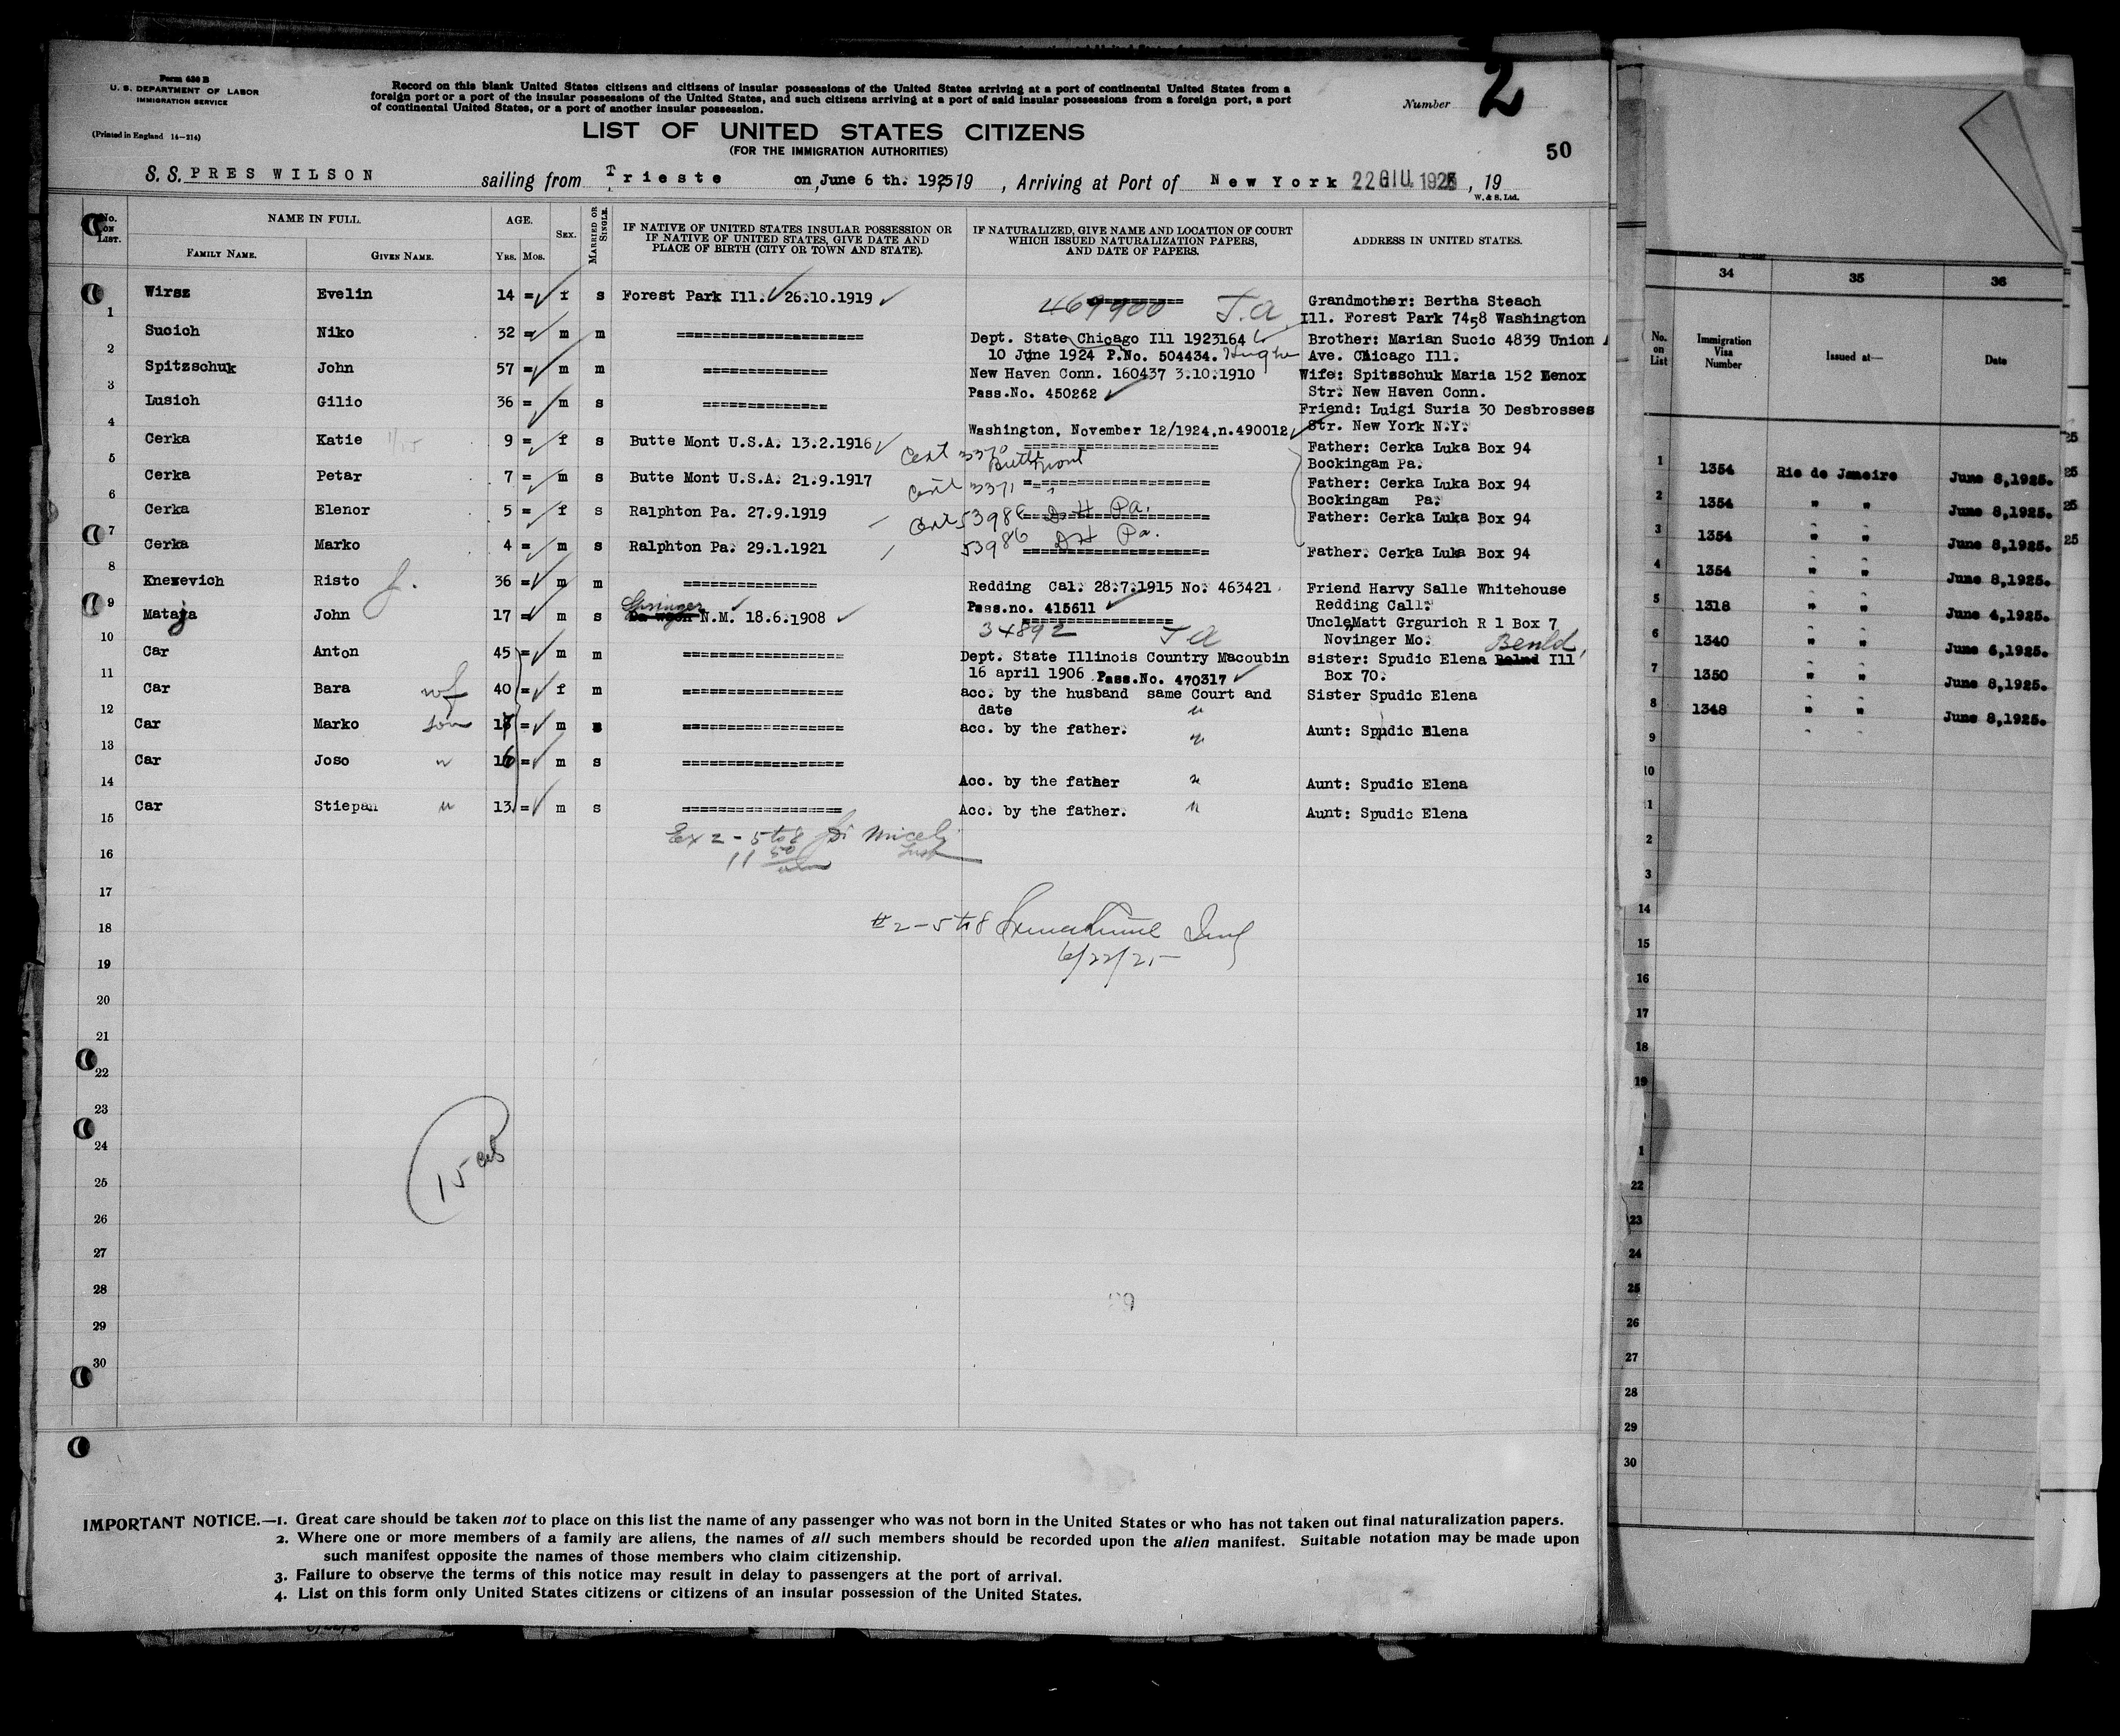 Form 630 B
U. S. DEPARTMENT OF LABOR
IMMIGRATION SERVICE
(Printed in England 14—214)
Record on this blank United States citizens and citizens of insular possessions of the United States arriving at a port of continental United States from a
foreign port or a port of the insular possessions of the United States, and such citizens arriving at a port of said insular possessions from a foreign port, a port
of continental United States, or a port of another insular possession.
Number 2
LIST OF UNITED STATES CITIZENS
(FOR THE IMMIGRATION AUTHORITIES)
50
S. S. PRES WILSON sailing from Trieste on, June 6 th. 1925 19 , Arriving at Port of New York 22 GIU. 1925 , 19
W. & S. Ltd.
No. ON LIST. NAME IN FULL. AGE. SEX. MARRIED OR SINGLE. IF NATIVE OF UNITED STATES INSULAR POSSESSION OR IF NATIVE OF UNITED STATES, GIVE DATE AND PLACE OF BIRTH (CITY OR TOWN AND STATE). IF NATURALIZED, GIVE NAME AND LOCATION OF COURT WHICH ISSUED NATURALIZATION PAPERS, AND DATE OF PAPERS. ADDRESS IN UNITED STATES.
FAMILY NAME. GIVEN NAME. YRS. MOS.
1 Wirsz Evelin 14 = f s Forest Park Ill. 26.10.1919 ========== 469900 J.a. Grandmother: Bertha Steach
Ill. Forest Park 7458 Washington
2 Sucich Niko 32 = m m ==================== Dept. State Chicago Ill 1923164 Brother: Marian Sucic 4839 Union
10 June 1924 P.No. 504434. Ave. Chicago Ill.
3 Spitzschuk John 57 = m m ============== New Haven Conn. 160437 3.10.1910 Wife: Spitsschuk Maria 152 Lenox
Pass.No. 450262 Str. New Haven Conn.
4 Lusich Gilio 36 = m s ============== Friend: Luigi Suria 30 Desbrosses
Washington, November 12/1924,n.490012 Str. New York N.Y.
5 Cerka Katie 9 = f s Butte Mont U.S.A. 13.2.1916 Cert 3370 Butte Mont Father: Cerka Luka Box 94
Bockingam Pa.
6 Cerka Petar 7 = m s Butte Mont U.S.A. 21.9.1917 Cert 3371 Father: Cerka Luka Box 94
Bockingam Pa.
7 Cerka Elenor 5 = f s Ralphton Pa. 27.9.1919 Cert 53986 Pa. Father: Cerka Luka Box 94
8 Cerka Marko 4 = m s Ralphton Pa. 29.1.1921 53986 Pa. Father. Cerka Luka Box 94
9 Knezevich Risto 36 = m m =============== Redding Cal. 28.7.1915 No. 463421 Friend Harvy Salle Whitehouse
Pass.no. 415611 Redding Call.
10 Mataja John 17 = m s Springer N.M. 18.6.1908 34892 J a Uncle,Matt Grgurich R 1 Box 7
Novinger Mo.
11 Car Anton 45 = m m ================== Dept. State Illinois Country Macoubin sister: Spudic Elena Benld, Ill
16 april 1906 Pass.No. 470317 Box 70.
12 Car Bara wf 40 = f m ================== acc. by the husband same Court and Sister Spudic Elena
date "
13 Car Marko son 18 = m s ================== acc. by the father. " Aunt: Spudic Elena
14 Car Joso " 16 = m s ================== Acc. by the father " Aunt: Spudic Elena
15 Car Stiepan " 13 = m s ================== Acc. by the father. " Aunt: Spudic Elena
Ex 2 - 5 to 8
11
16
17
18
#2 - 5 to 8
6/22/25
19
20
21
22
23
24
15
25
26
27
28
29
30
IMPORTANT NOTICE.—1. Great care should be taken not to place on this list the name of any passenger who was not born in the United States or who has not taken out final naturalization papers.
2. Where one or more members of a family are aliens, the names of all such members should be recorded upon the alien manifest. Suitable notation may be made upon
such manifest opposite the names of those members who claim citizenship.
3. Failure to observe the terms of this notice may result in delay to passengers at the port of arrival.
4. List on this form only United States citizens or citizens of an insular possession of the United States.
34 35 36
No. on List Immigration Visa Number Issued at— Date
1 1354 Rio de Janeiro June 8,1925.
2 1354 " " June 8,1925.
3 1354 " " June 8,1925.
4 1354 " " June 8,1925.
5 1318 " " June 4,1925.
6 1340 " " June 6,1925.
7 1350 " " June 8,1925.
8 1348 " " June 8,1925.
9
10
1
2
3
14
15
16
17
18
19
1
22
23
24
25
26
27
28
29
30
25
25
25
25